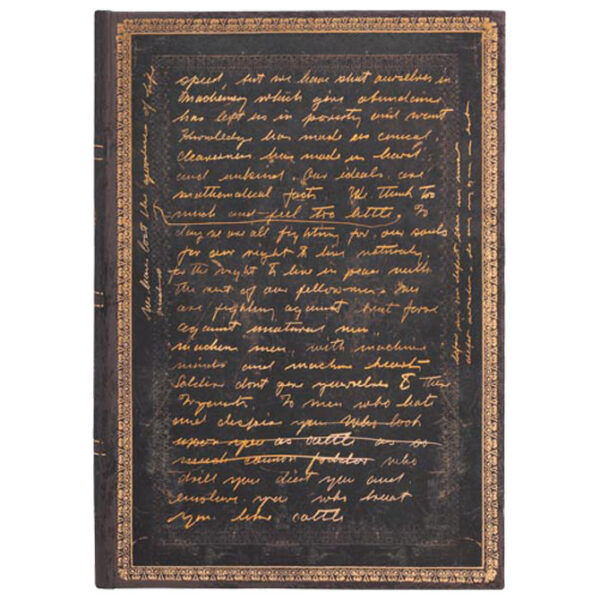 speed, but we have shut ourselves in
Machinery which gives abundance
has left us in poverty and want
Knowledge has made us cynical
cleverness has made us hard
and unkind. Our ideals are
mathematical facts. We think too
much and feel too little. To
day we are all fighting for our souls
for our right to live naturally
for the right to live in peace with
the rest of our fellowmen. We
are fighting against brut force
against unatural men
machine men, with machine
minds and machine hearts
Soldiers dont give yourselves to these
Tryants. To men who hate
and despise you who look
upon you as cattle as so
much cannon fodder who
drill you diet you and
enslave you who treat
you like cattle
We have lost the of life